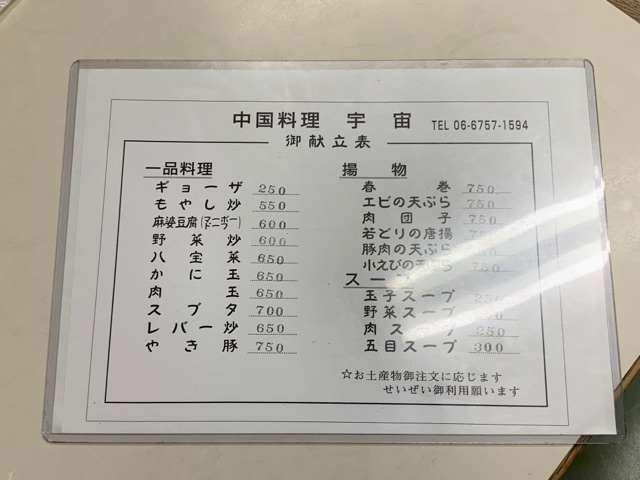 中国料理 宇宙 TEL 06-6757-1594
御献立表
一品料理
ギョーザ 250
もやし炒 550
麻婆豆腐 600
野菜炒 600
八宝菜 650
かに玉 650
肉玉 650
スブタ 700
レバー炒 650
やき豚 750
揚物
春巻 750
エビの天ぷら 750
肉団子 750
若どりの唐揚 750
豚肉の天ぷら
小えびの天ぷら 750
スープ
玉子スープ 250
野菜スープ
肉スープ 250
五目スープ 300
☆お土産物御注文に応じます
せいぜい御利用願います